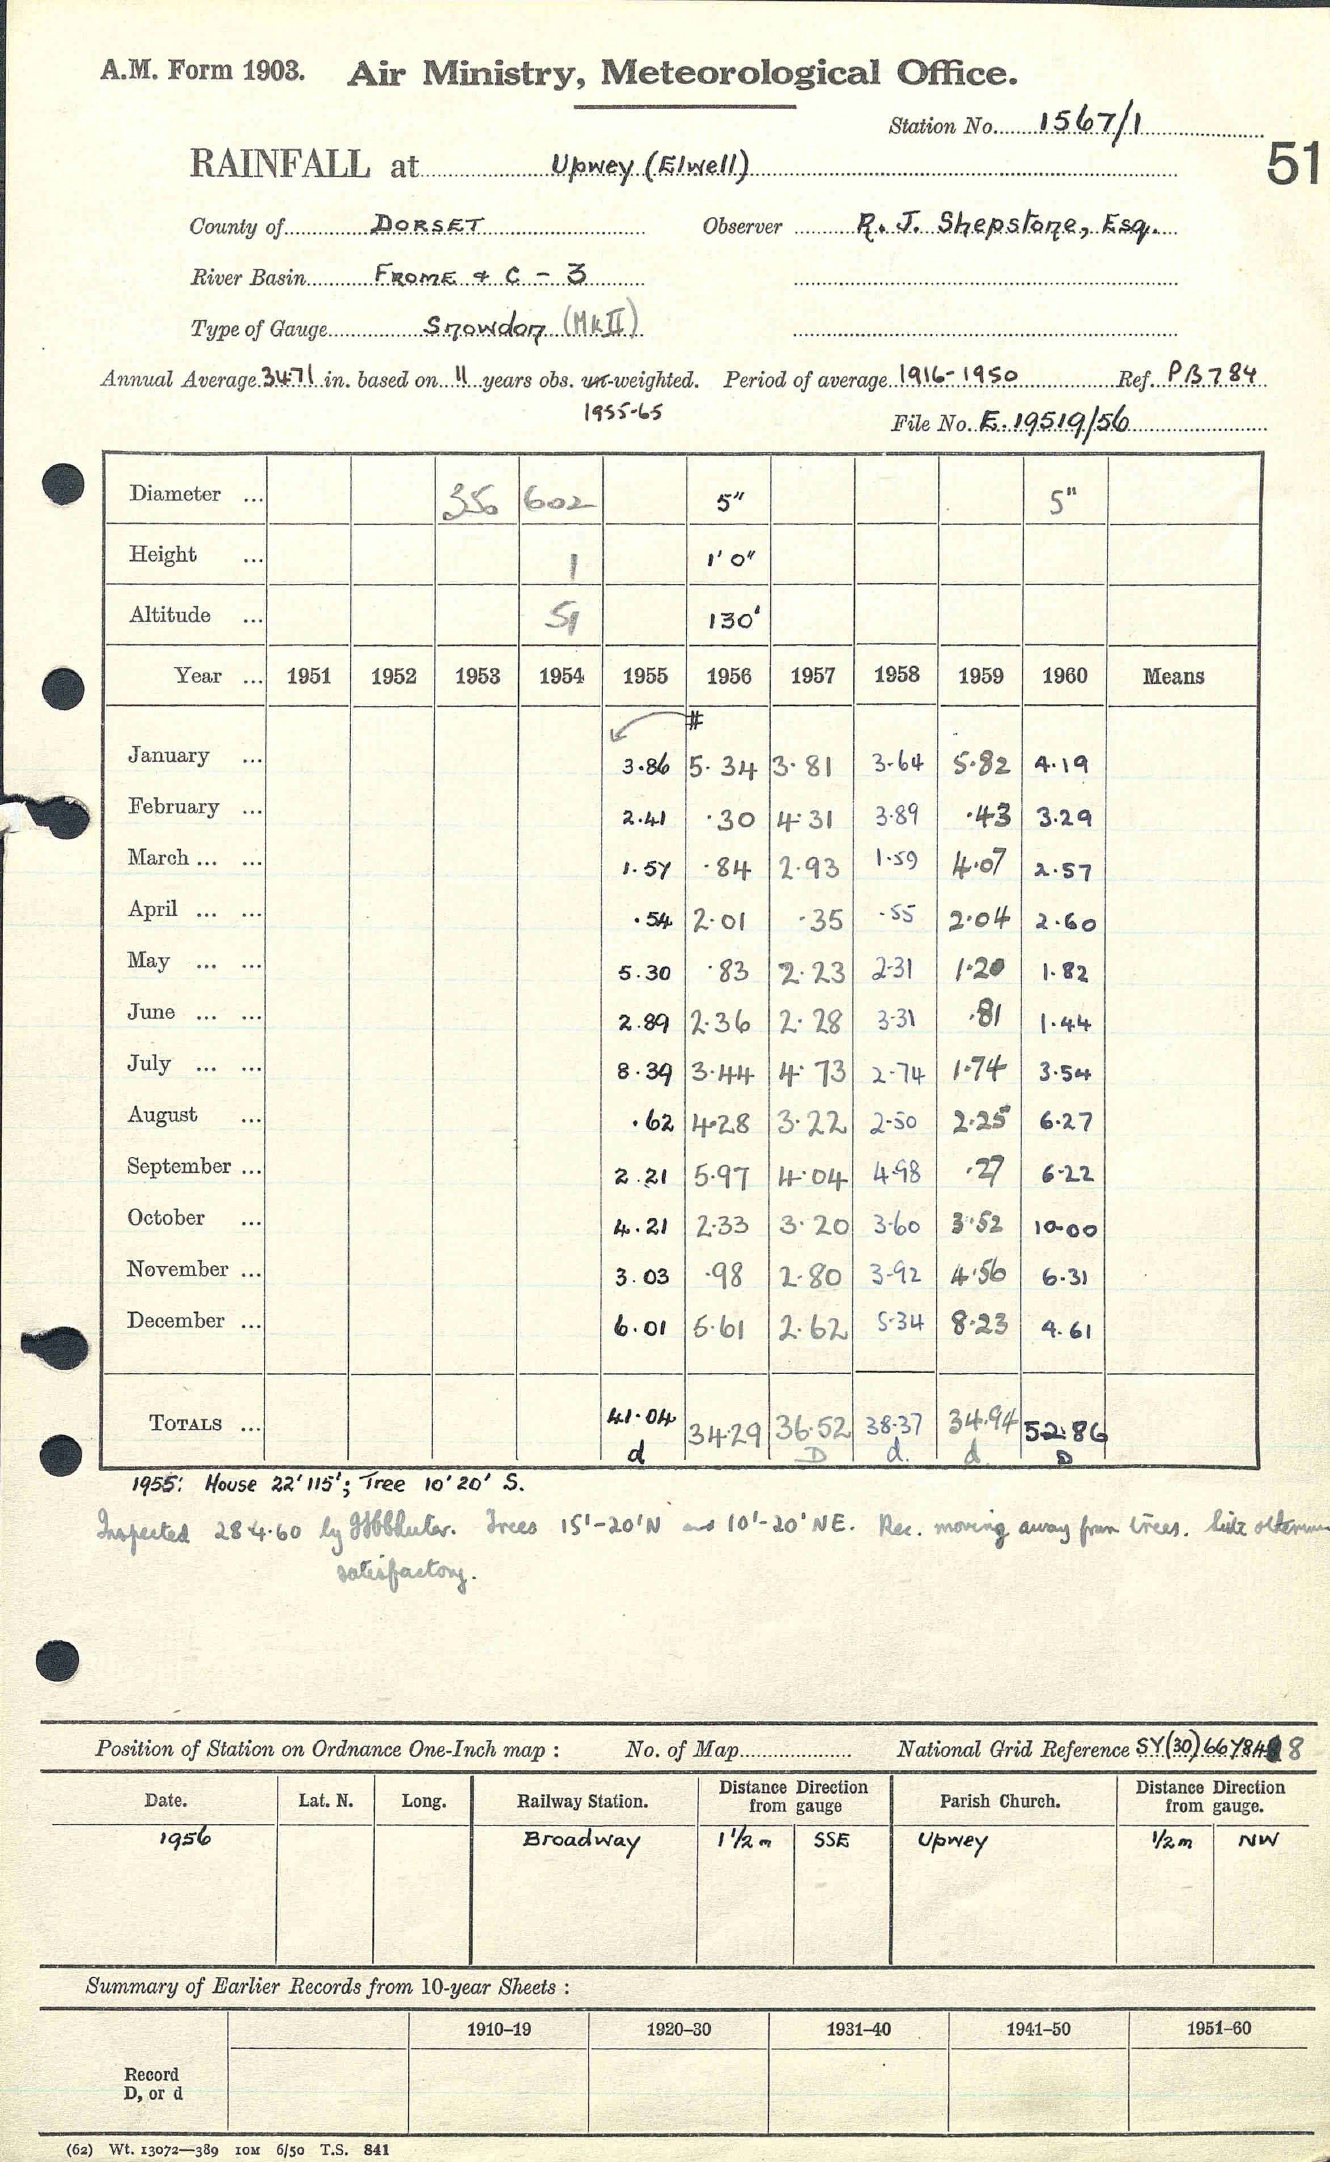 A.M. Form 1903. Air Ministry, Meteorological Office.
Station No. 1567/1
51
RAINFALL at Upwey (Elwell)
County of DORSET Observer R. J. Shepstone, Esq.
River Basin FROME & C - 3
Type of Gauge Snowdon (MkII)
Annual Average 34.71 in. based on 11 years obs. un-weighted. Period of average 1916-1950 Ref. PB784
1955-65
File No. E. 19519/56
Diameter ... 35 602 5" 5"
Height ... 1 1' 0"
Altitude ... 51 130'
Year ... 1951 1952 1953 1954 1955 1956 1957 1958 1959 1960 Means
#
January ... 3.86 5.34 3.81 3.64 5.82 4.19
February ... 2.41 .30 4.31 3.89 .43 3.29
March ... ... 1.57 .84 2.93 1.59 4.07 2.57
April ... ... .54 2.01 .35 .55 2.04 2.60
May ... ... 5.30 .83 2.23 2.31 1.20 1.82
June ... ... 2.89 2.36 2.28 3.31 .81 1.44
July ... ... 8.39 3.44 4.73 2.74 1.74 3.54
August ... .62 4.28 3.22 2.50 2.25 6.27
September ... 2.21 5.97 4.04 4.98 .27 6.22
October ... 4.21 2.33 3.20 3.60 3.52 10.00
November ... 3.03 .98 2.80 3.92 4.56 6.31
December ... 6.01 5.61 2.62 5.34 8.23 4.61
TOTALS ... 41.04 34.29 36.52 38.37 34.94 52.86
d D d. d D
1955: House 22' 115'; Tree 10' 20' S.
Inspected 28.4.60 by Trees 15'-20'N and 10'-20' NE. Rec. moving away from trees. Site
satisfactory.
Position of Station on Ordnance One-Inch map : No. of Map National Grid Reference SY(30)667848
Date. Lat. N. Long. Railway Station. Distance Direction from gauge Parish Church. Distance Direction from gauge.
1956 Broadway 1 1/2 m SSE Upwey 1/2 m NW
Summary of Earlier Records from 10-year Sheets :
1910–19 1920–30 1931–40 1941–50 1951–60
Record
D, or d
(62) Wt. 13072—389 10M 6/50 T.S. 841